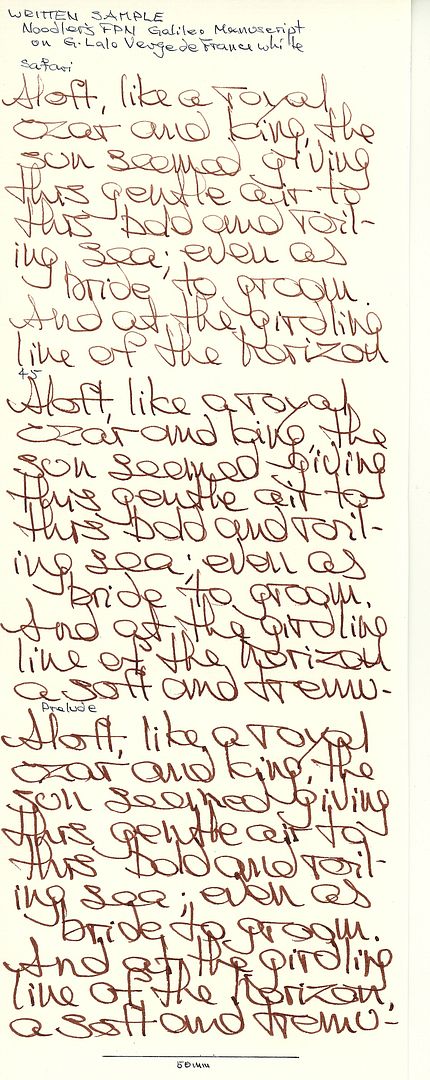 WRITTEN SAMPLE
Noodler's FPN Galileo Manuscript
on G. Lalo Verge de France white
Safari
Aloft, like a royal
czar and king, the
sun seemed giving
this gentle air to
this bold and roil-
ing sea; even as
bride, to groom.
And at the girdling
line of the horizon
45
Aloft, like a royal
czar and king, the
sun seemed giving
this gentle air to
this bold and roil-
ing sea; even as
bride to groom.
And at the girdling
line of the horizon
a soft and tremu-
Prelude
Aloft, like a royal
czar and king, the
sun seemed giving
this gentle air to
this bold and roil-
ing sea; even as
bride to groom.
And at the girdling
line of the horizon,
a soft and tremu-
50mm